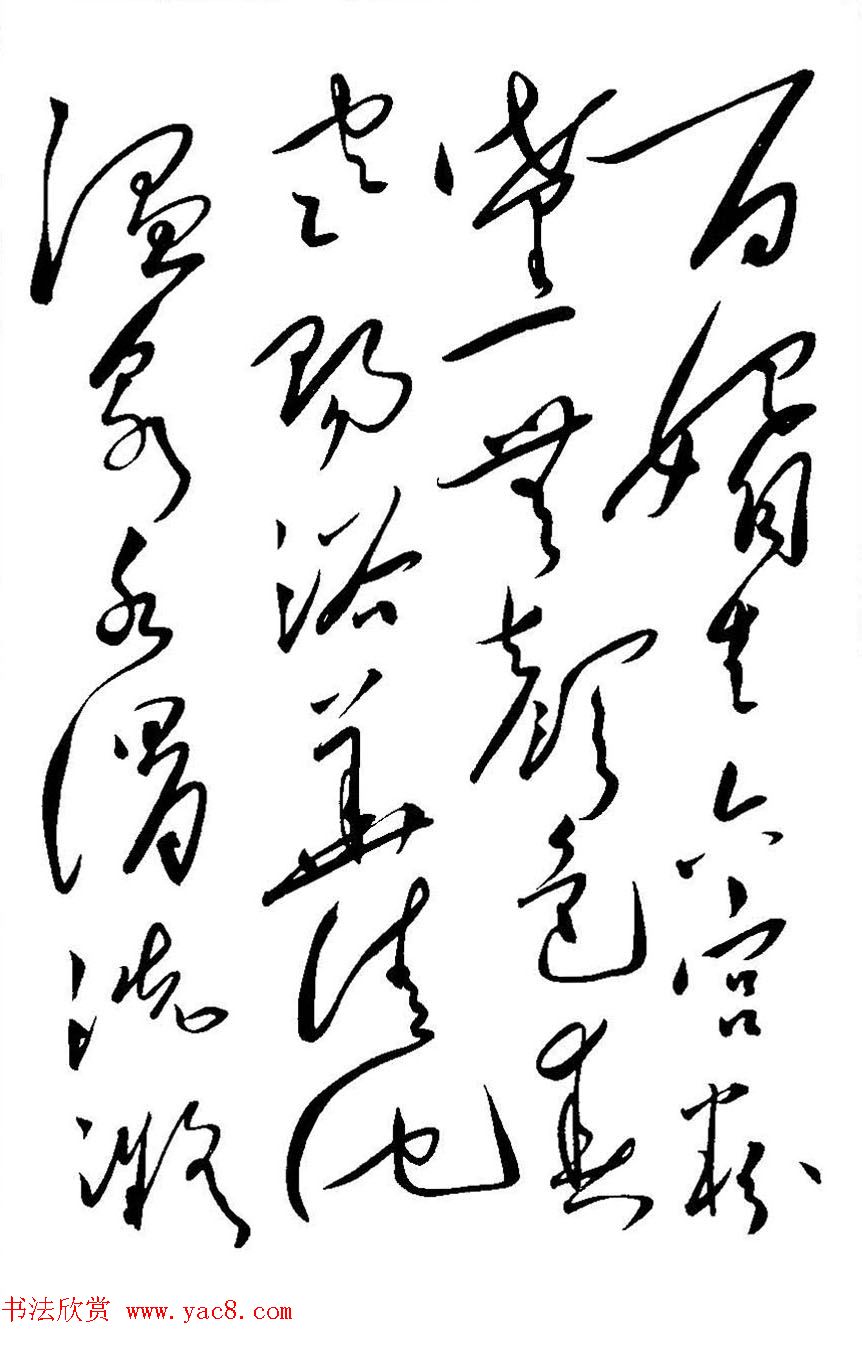 百媚生六宫粉
黛無顏色春
寒賜浴華清池
温泉水滑洗凝
书法欣赏 www.yac8.com